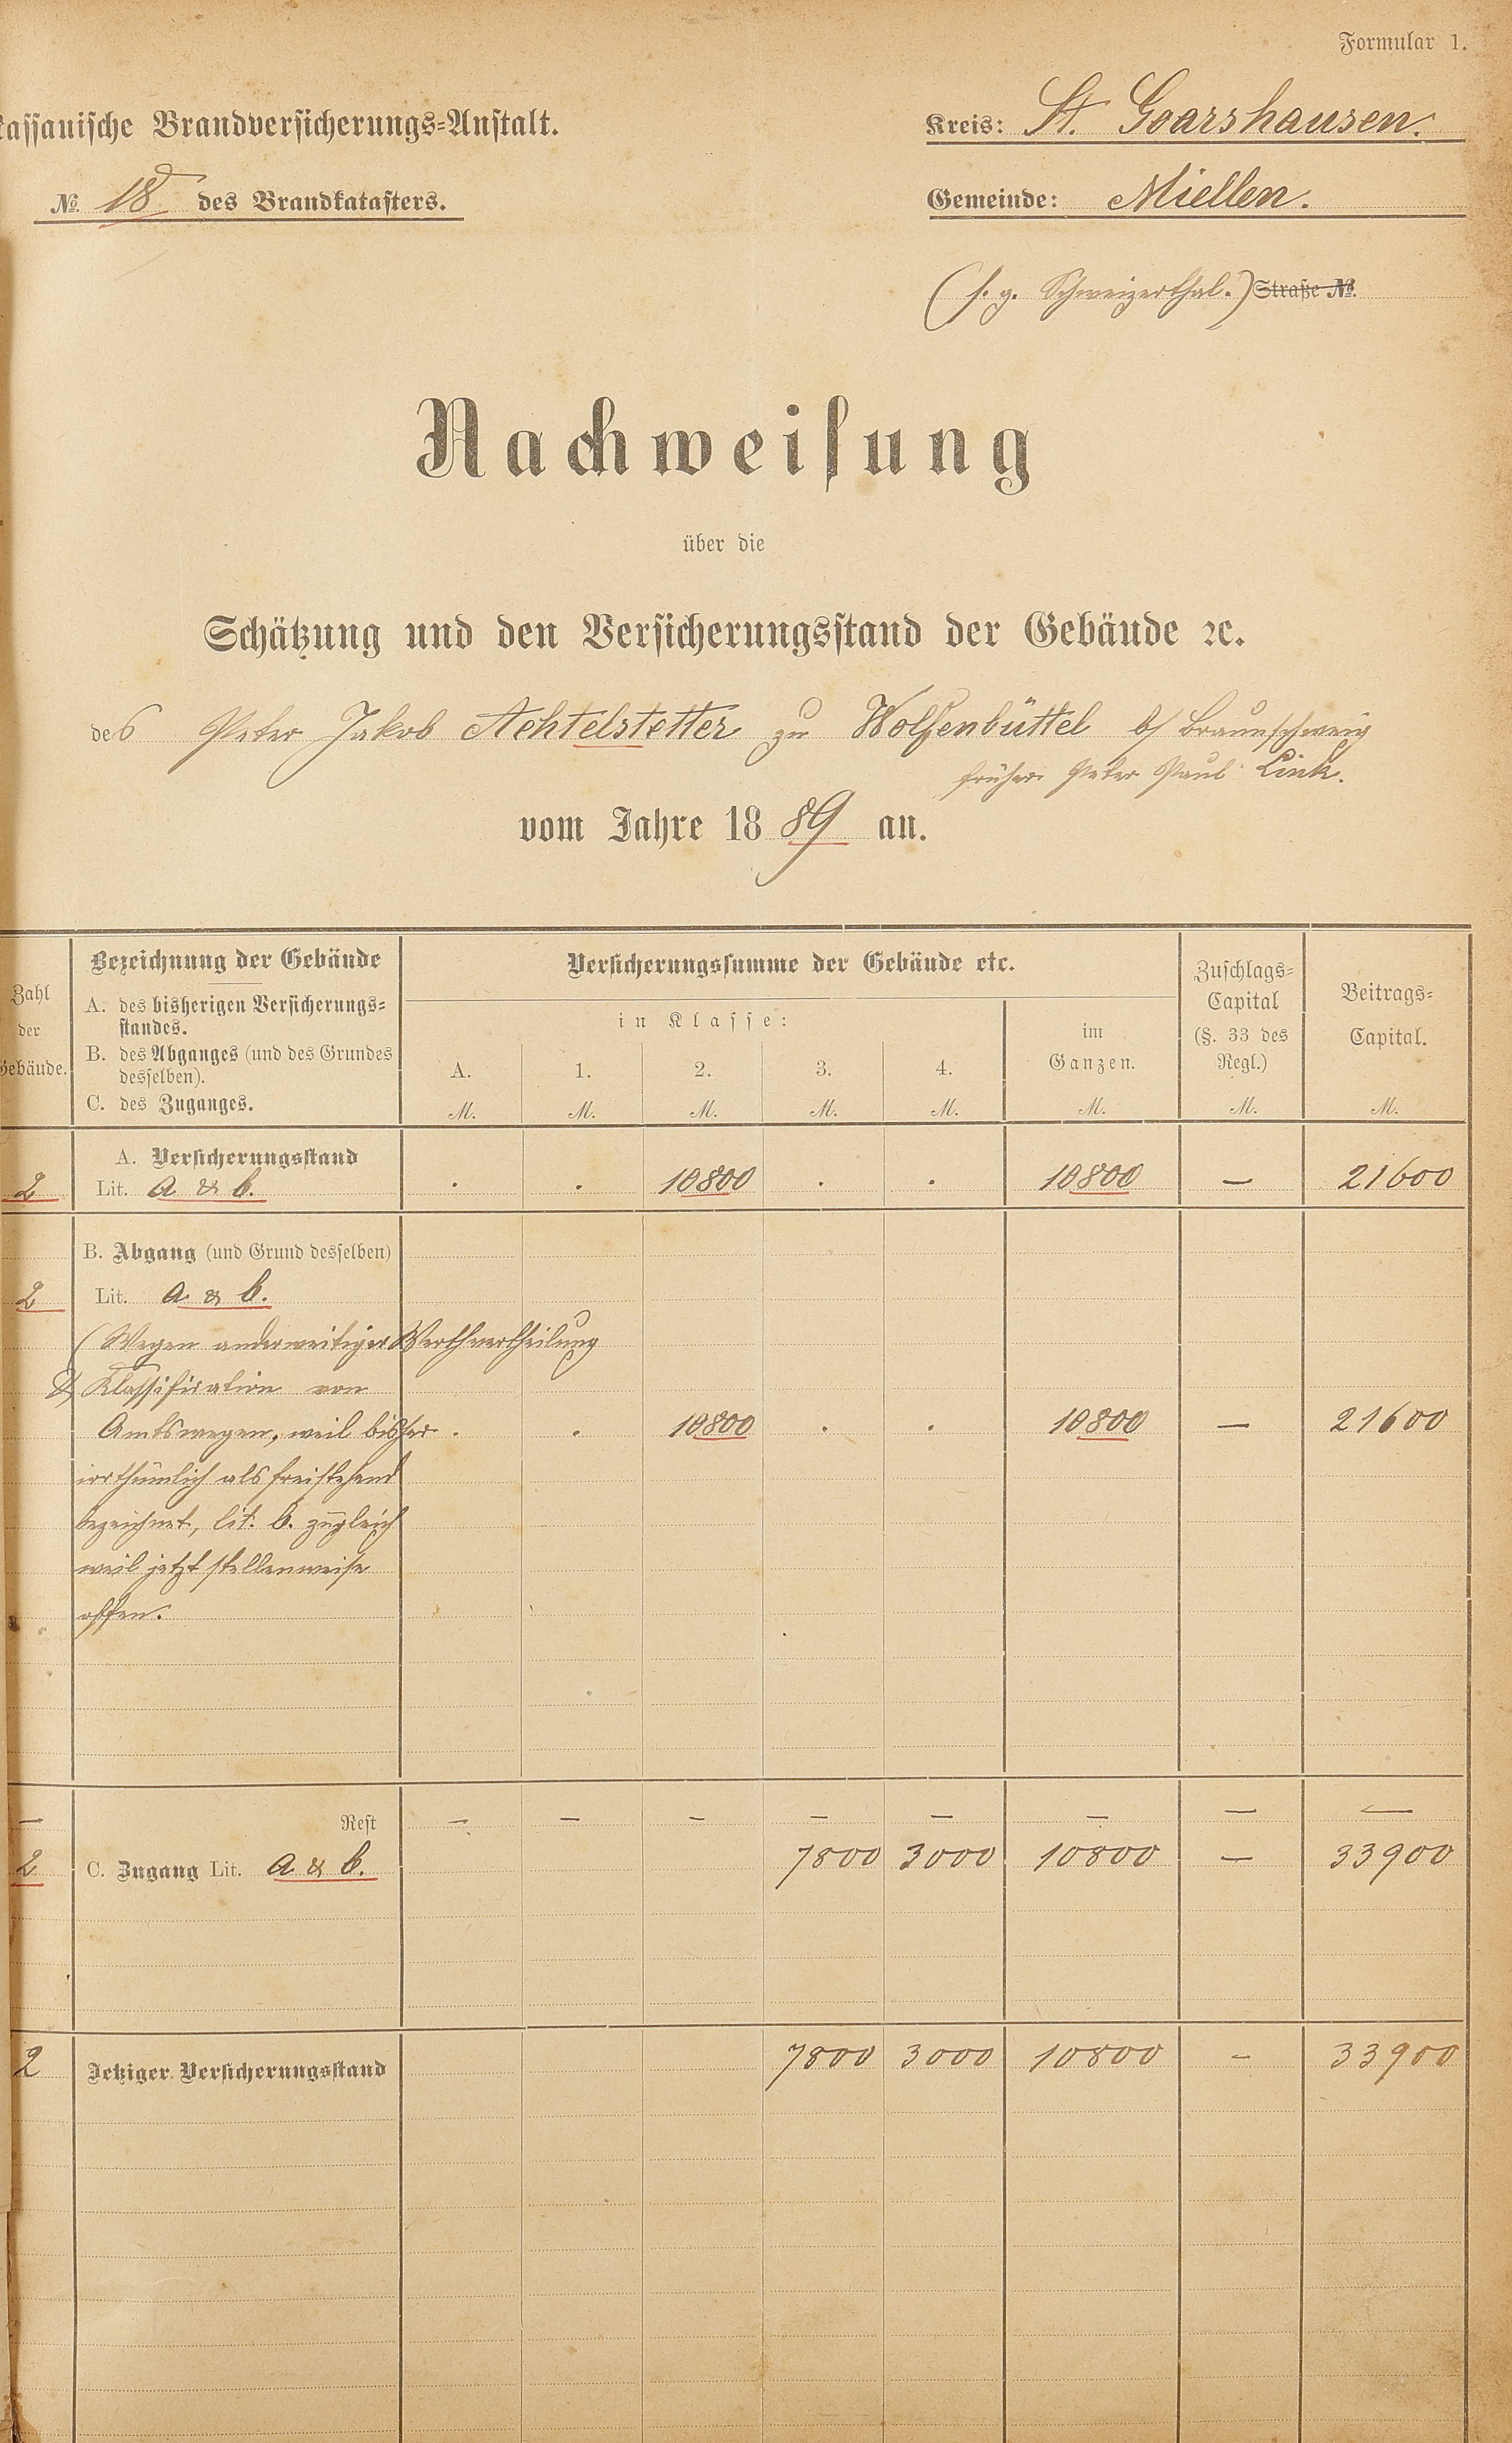 Formular 1.
assauische Brandversicherungs-Anstalt.
Kreis: St. Goarshausen.
№ 18 des Brandkatasters.
Gemeinde: Miellen.
(s. g. Schweizerthal.) Straße №
Nachweisung
über die
Schätzung und den Versicherungsstand der Gebäude ꝛc.
des Peter Jakob Achtelstetter zu Wolfenbüttel b/ Braunschweig
früher Peter Paul Link.
vom Jahre 1889 an.
Zahl der Gebäude.
Bezeichnung der Gebäude
A. des bisherigen Versicherungs-
standes.
B. des Abganges (und des Grundes
desselben).
C. des Zuganges.
Versicherungssumme der Gebäude etc.
in Klasse:
A. 1. 2. 3. 4.
im
Ganzen.
Zuschlags-
Capital
(§. 33 des
Regl.)
Beitrags-
Capital.
M. M. M. M. M. M. M. M.
A. Versicherungsstand
2 Lit. a & b. . . 10800 . . 10800 — 21600
B. Abgang (und Grund desselben)
2 Lit. a & b.
(Wegen anderweitiger Werthvertheilung
& Klassifikation von
Amtswegen, weil bisher . . 10800 . . 10800 — 21600
irrthümlich als freistehend
bezeichnet, lit. b. zugleich
weil jetzt stellenweise
offen.
— Rest — — — — — — — —
2 C. Zugang Lit. a & b. 7800 3000 10800 — 33900
2 Jetziger Versicherungsstand 7800 3000 10800 — 33900